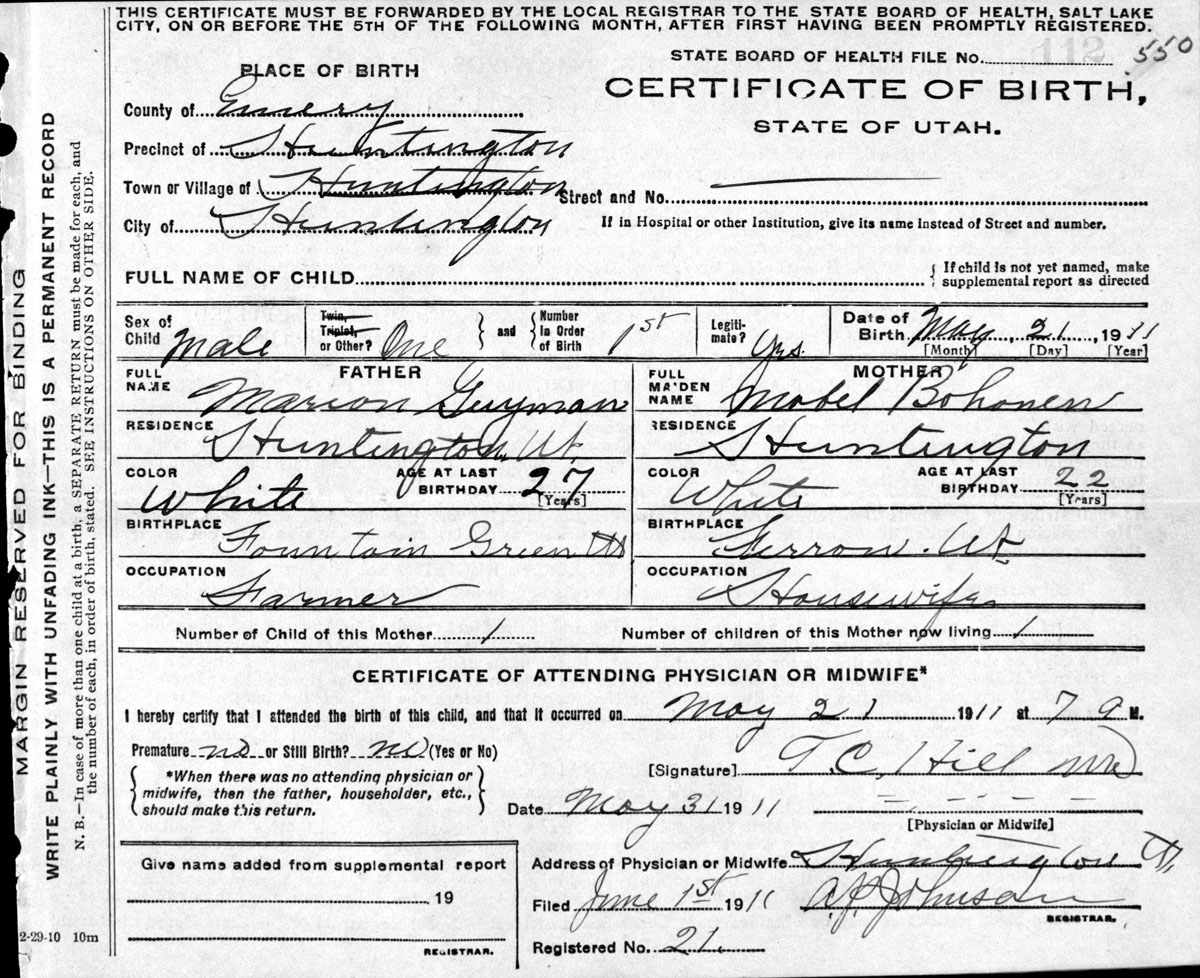 THIS CERTIFICATE MUST BE FORWARDED BY THE LOCAL REGISTRAR TO THE STATE BOARD OF HEALTH, SALT LAKE
CITY, ON OR BEFORE THE 5TH OF THE FOLLOWING MONTH, AFTER FIRST HAVING BEEN PROMPTLY REGISTERED.
112 550
STATE BOARD OF HEALTH FILE No.
PLACE OF BIRTH
CERTIFICATE OF BIRTH,
STATE OF UTAH.
County of Emery
Precinct of Huntington
Town or Village of Huntington Street and No.
City of Huntington If in Hospital or other Institution, give its name instead of Street and number.
FULL NAME OF CHILD If child is not yet named, make
supplemental report as directed
Sex of Child Male Twin, Triplet, or Other? One and Number in Order of Birth 1st Legiti-mate? Yes. Date of Birth May 21, 1911
[Month] [Day] [Year]
FATHER MOTHER
FULL NAME Marion Guyman FULL MAIDEN NAME Mabel Bohonen
RESIDENCE Huntington Ut. RESIDENCE Huntington
COLOR White AGE AT LAST BIRTHDAY 27 [Years] COLOR White AGE AT LAST BIRTHDAY 22 [Years]
BIRTHPLACE Fountain Green Ut BIRTHPLACE Ferron. Ut
OCCUPATION Farmer OCCUPATION Housewife
Number of Child of this Mother 1 Number of children of this Mother now living 1
CERTIFICATE OF ATTENDING PHYSICIAN OR MIDWIFE*
I hereby certify that I attended the birth of this child, and that it occurred on May 21 1911 at 7 a M.
Premature no or Still Birth? no (Yes or No)
[Signature] T.C. Hill MD
*When there was no attending physician or
midwife, then the father, householder, etc.,
should make this return.
Date May 31 1911
[Physician or Midwife]
Give name added from supplemental report
19
REGISTRAR.
Address of Physician or Midwife Huntington Ut.
Filed June 1st 1911 Johnson
REGISTRAR.
Registered No. 21.
2-29-10 10m
MARGIN RESERVED FOR BINDING
WRITE PLAINLY WITH UNFADING INK—THIS IS A PERMANENT RECORD
N. B.—In case of more than one child at a birth, a SEPARATE RETURN must be made for each, and
the number of each, in order of birth, stated. SEE INSTRUCTIONS ON OTHER SIDE.